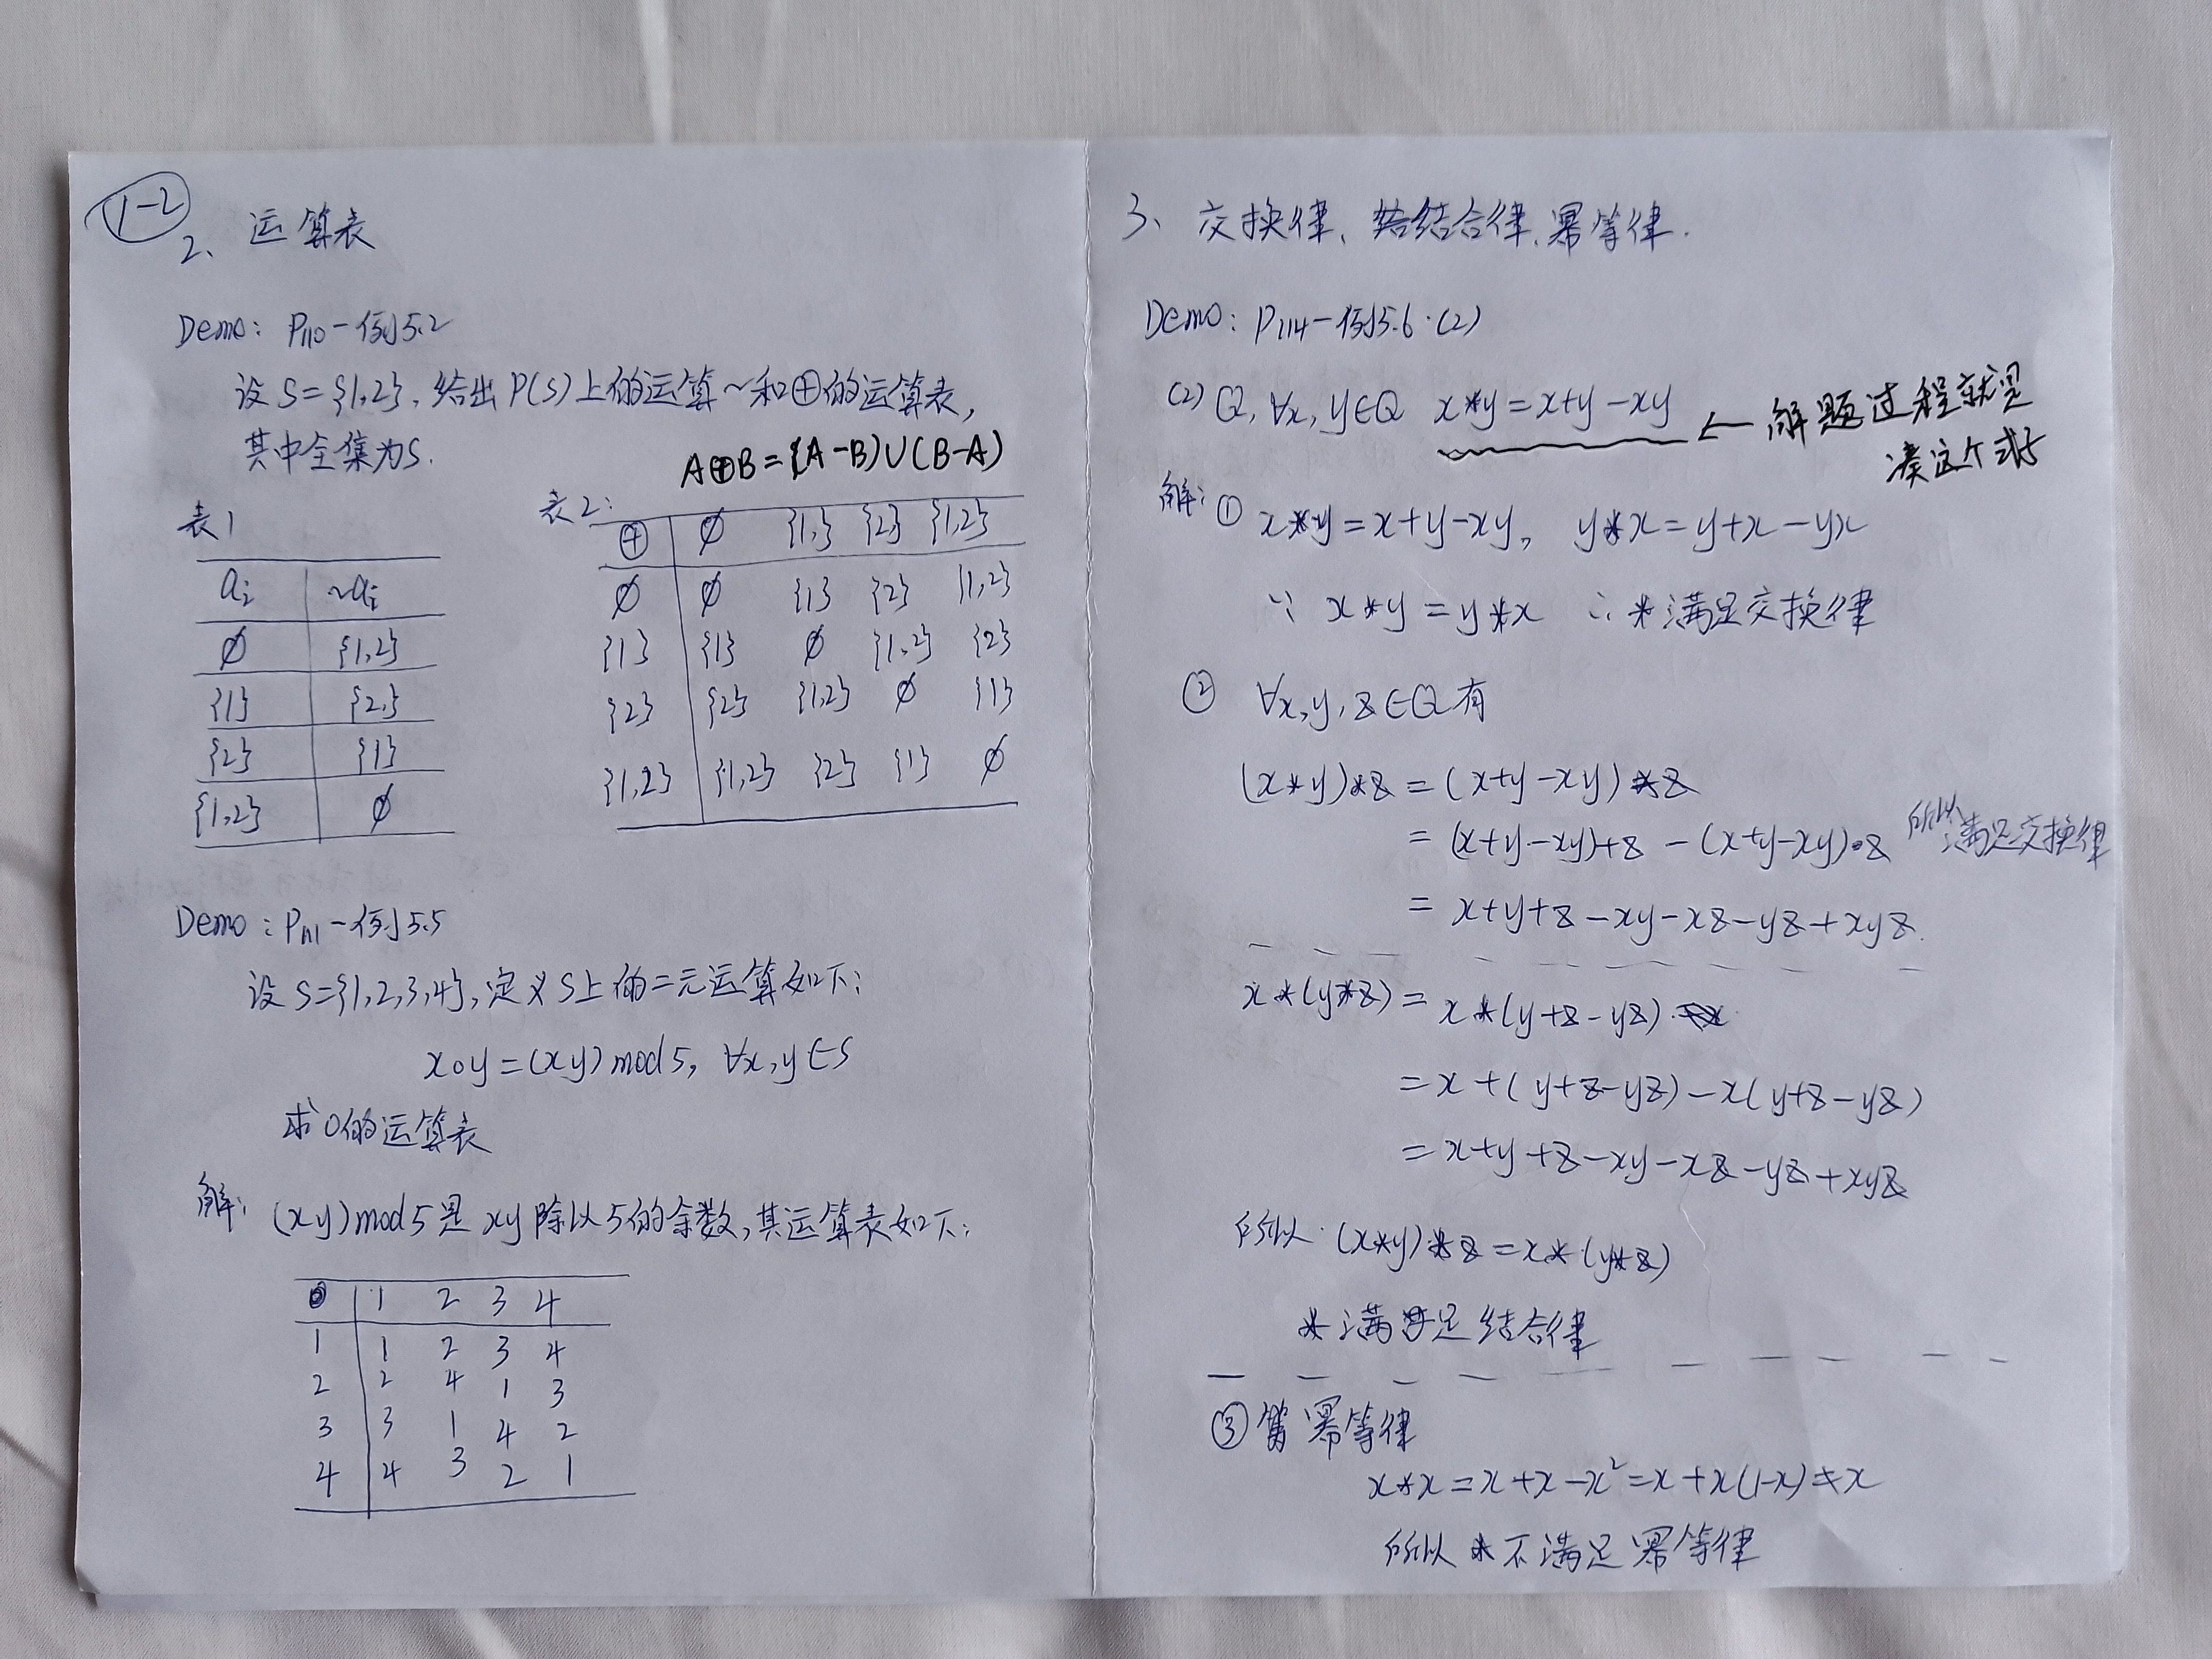 1-2
2、运算表
Demo: P110-例5.2
设S={1,2},给出P(S)上的运算~和⊕的运算表,
其中全集为S.
A⊕B=(A-B)∪(B-A)
表1
ai ~ai
∅ {1,2}
{1} {2}
{2} {1}
{1,2} ∅
表2:
⊕ ∅ {1} {2} {1,2}
∅ ∅ {1} {2} {1,2}
{1} {1} ∅ {1,2} {2}
{2} {2} {1,2} ∅ {1}
{1,2} {1,2} {2} {1} ∅
Demo:P111-例5.5
设S={1,2,3,4},定义S上的二元运算如下:
x∘y=(xy)mod5, ∀x,y∈S
求∘的运算表
解: (xy)mod5是xy除以5的余数,其运算表如下:
∘ 1 2 3 4
1 1 2 3 4
2 2 4 1 3
3 3 1 4 2
4 4 3 2 1
3、交换律、结合律、幂等律.
Demo: P114-例5.6.(2)
(2) Q, ∀x,y∈Q x*y=x+y-xy ← 解题过程就是
凑这个式子
解: ① x*y=x+y-xy, y*x=y+x-yx
∵ x*y=y*x ∴ *满足交换律
② ∀x,y,z∈Q有
(x*y)*z=(x+y-xy)*z
=(x+y-xy)+z-(x+y-xy)•z 所以满足交换律
=x+y+z-xy-xz-yz+xyz.
x*(y*z)=x*(y+z-yz)
=x+(y+z-yz)-x(y+z-yz)
=x+y+z-xy-xz-yz+xyz
所以(x*y)*z=x*(y*z)
*满足结合律
③幂等律
x*x=x+x-x²=x+x(1-x)≠x
所以*不满足幂等律